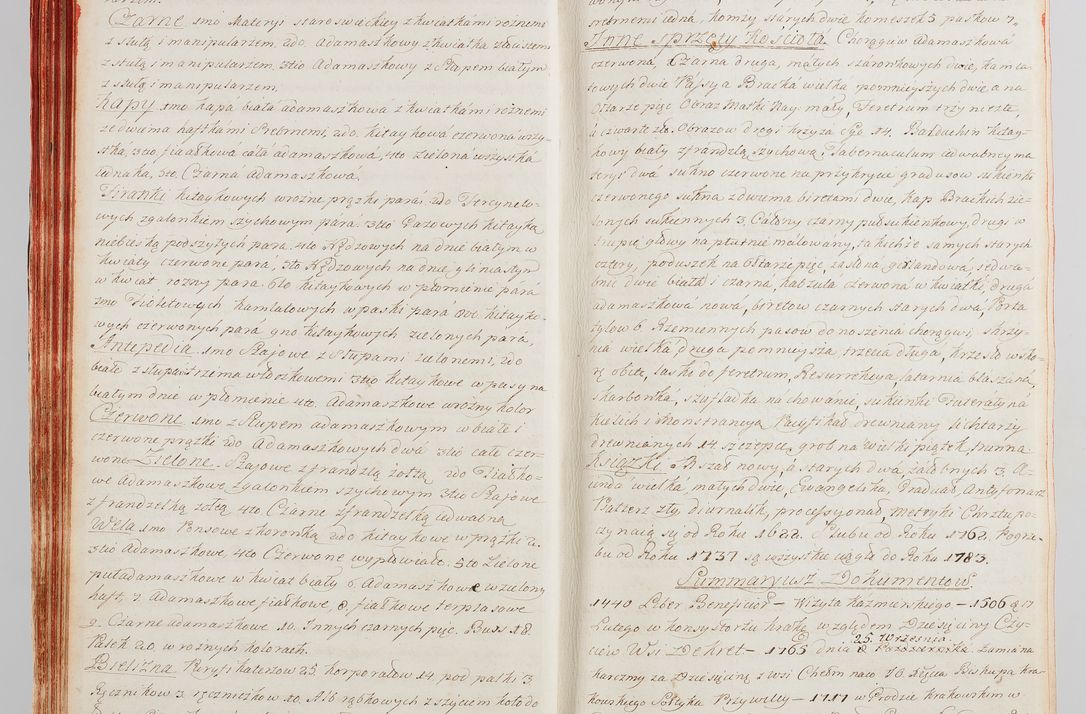 Czarne 1mo Materyi staroswieckiey z kwiatkami rożnemi
z stułą i manipularzem, 2do Adamaszkowy z kwiatka złocistemi
z stułą i manipularzem. 3tio Adamaszkowy z Słupem białym
z stułą i manipularzem.
Kapy 1mo kapa biała adamaszkowa z kwiatkami rożnemi
ze dwuma haftkami srebrnemi, 2do kitaykowa czerwona wszy-
stka, 3tio fiiałkowa cała adamaszkowa, 4to zielona wszystka
iednaka, 5to Czarna adamaszkowa.
Firanki kitaykowych w rożne prążki para, 2do Tercynelo-
wych z galonkiem szychowym para. 3tio Gazowych kitayką
niebieską podszytych para. 4to Nędzowych na dnie białym w
kwiaty czerwone para, 5to Nędzowych na dnie gliniastym
w kwiat rozny para 6to kitaykowych w płomienie para
7mo Fioletowych kamlatowych w paski para 8vo kitayko-
wych czerwonych para 9no kitaykowych zielonych para,
Antepedia 1mo Szajowe z Słupami zielonemi, 2do
białe z słupa strzema włoczkowemi 3tio kitaykowe w pasy na
białym dnie w płomienie 4to. Adamaszkowe w rożny kolor
Czerwone 1mo z Słupem adamaszkowym w białe i
czerwone prążki 2do Adamaszkowych dwa 3tio całe czer-
wone Zielone. Szajowe z frandzlą żołtą 2do Fiałko-
we Adamaszkowe z galonkiem szychowym 3tio Szajowe
z frandzelką żołtą 4to Czarne z frandzelką iedwabną
Wela 1mo Ponsowe z koronką 2do kitaykowe w prążki 2.
3tio Adamaszkowe, 4to Czerwone wypłowiałe. 5to Zielone
puładamaszkowe w kwiat biały 6. Adamaszkowe w zielony
haft, 7. Adamaszkowe fiałkowe, 8. fiałkowe terpiasowe
9. Czarne adamaszkowe 10. Innych czarnych pięć. Burs 18.
Palek 20. w rożnych kolorach.
Bielizna Puryfikaterzow 25. korporałow 14 pod palki 3
Ręcznikow 3. ręczniczkow 10. Alb rąbkowych z szyciem koło do
srebrnemi iedna, komży starych dwie komeszek 3 paskow 7.
Inne sprzęty kościoła. Chorągiew Adamaszkowa
czerwona, Czarna druga, małych szaronkowych dwie, kamla-
towych dwie Passya Bracka wielka pomnieyszych dwie a na
Ołtarze pięć Obraz Matki Nay mały, Feretrum trzy niezłe,
a czwarte złe. Obrazow drogi krzyża Sgo 14. Balduchin kitay-
kowy biały z frandzlą szychową, Tabernaculum iedwabney ma
teryi dwa sukno czerwone na przykrycie gradusow sukienki
czerwonego sukna z dwuma biretami dwie, kap Brackich zie-
lonych sukiennych 3. Całuny czarny pułsukienkowy, drugi w
trupie głowy na płutnie malowany, takichże samych starych
cztery, poduszek na Ołtarze pięć, zasłona gierlandowa, iedwa-
bne dwie biała i czarna, kabzula czerwona w kwiatki, druga
adamaszkowa nowa, biretow czarnych starych dwa, Porta
tylow 6. Rzemiennych pasow do noszenia chorągwi skrzy-
nia wielka druga pomnieysza trzecia długa, krzesło w sko-
rę obite, laski do feretrum, Resurrekcya, latarnia blaszana,
skarbonka, szafladka na chowanie, sukienki Futerały na
kielich i Monstrancya Pacyfikał drewniany lichtarzy
drewnianych 14. szczepce, grob na wielki piątek trunna.
Książki. Mszał nowy, a starych dwa żałobnych 3. A-
ienda wielka, małych dwie, Ewangeliska, Graduał, Antyfonarz
Psałterz zły, diurnalik, processyonał, Metryki Chrztu po-
czynaią się od Roku 1622. Slubu od Roku 1762. Pogrze-
bu od Roku 1737 są wszystkie ciągłe do Roku 1783.
Summaryusz Dokumentow
1440 Liber Beneficior – Wizyta kazimirskiego – 1506 17
Lutego w konsystorżu krakow względem Dziesięciny Czy-
ciow Wsi Dekret – 1765 dnia 25. Września zamiana
karczmy za Dziesięcinę z wsi Chełm nace 10. Xięcia Biskupa kra
kowskiego Sołtyka Przywiley – 1717 w Grodzie krakowskim w-